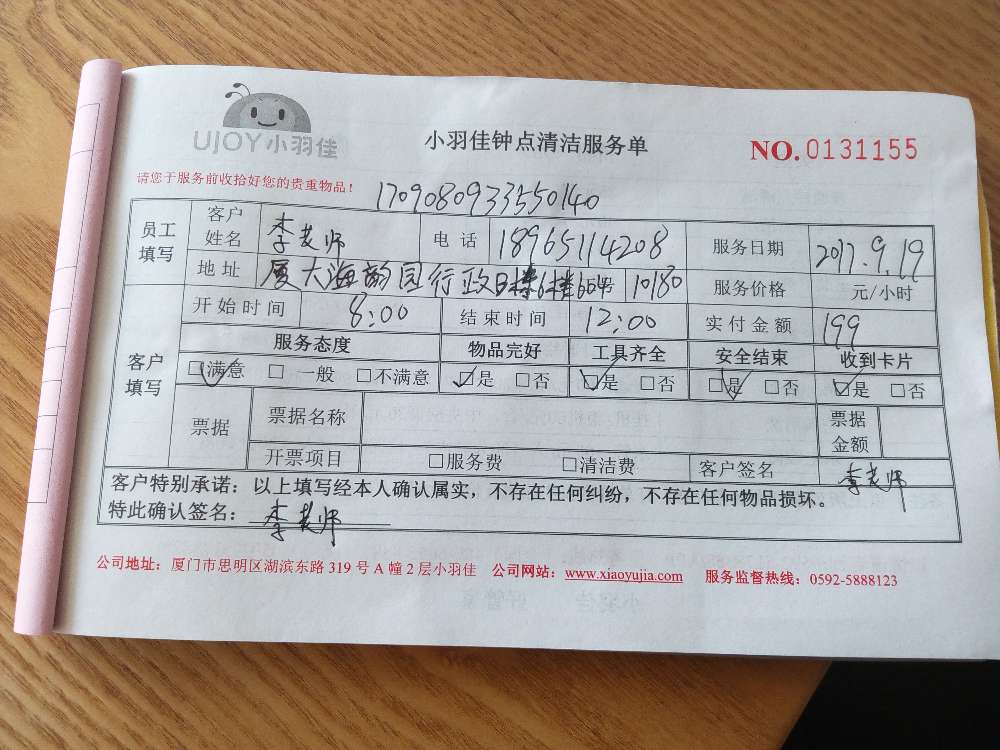 UJOY小羽佳
小羽佳钟点清洁服务单
NO.0131155
请您于服务前收拾好您的贵重物品！
17090809333550140
员工填写 客户姓名 李老师 电话 18965114208 服务日期 2017.9.19
地址 厦大海韵园行政B楼6楼604号 10180 服务价格 元/小时
客户填写 开始时间 8:00 结束时间 12:00 实付金额 199
服务态度 物品完好 工具齐全 安全结束 收到卡片
☑满意 □一般 □不满意 ☑是 □否 ☑是 □否 ☑是 □否 ☑是 □否
票据 票据名称 票据金额
开票项目 □服务费 □清洁费 客户签名 李老师
客户特别承诺：以上填写经本人确认属实，不存在任何纠纷，不存在任何物品损坏。
特此确认签名： 李老师
公司地址：厦门市思明区湖滨东路 319 号 A 幢 2 层小羽佳 公司网站：www.xiaoyujia.com 服务监督热线：0592-5888123